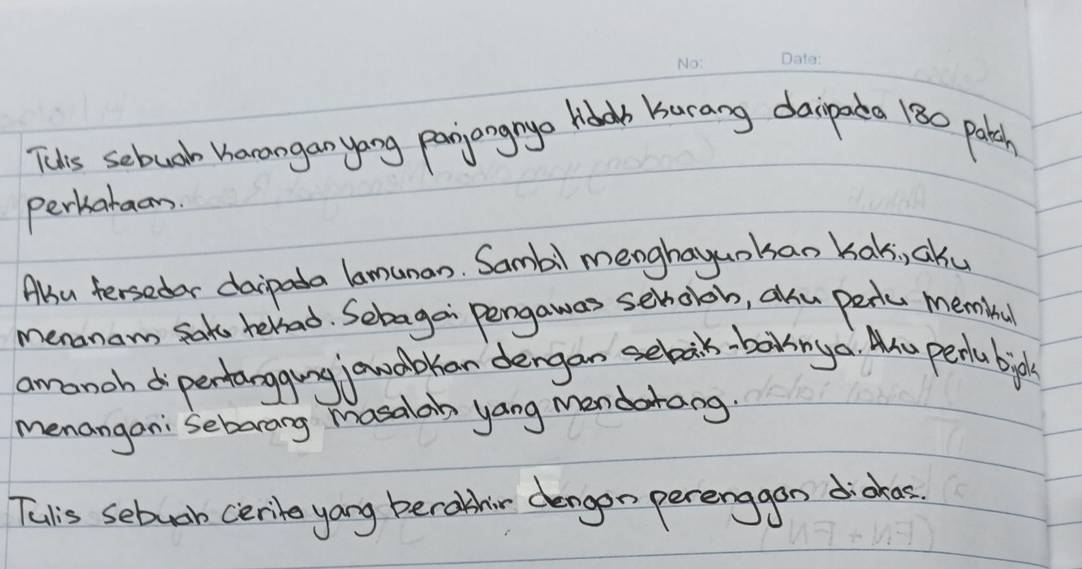 No: Date:
Tulis sebuah karangan yang panjangnya tidak kurang daripada 180 patah
perkataan.
Aku tersedar daripada lamunan. Sambil menghayunkan kaki, aku
menanam satu tekad. Sebagai pengawas sekolah, aku perlu memikul
amanah dipertanggungjawabkan dengan sebaik-baiknya. Aku perlu bijak
menangani sebarang masalah yang mendatang.
Tulis sebuah cerita yang berakhir dengan perenggan di atas.